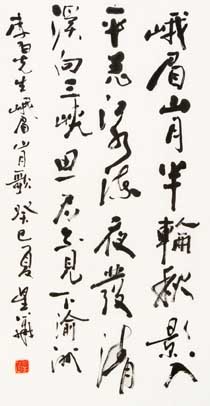 峨眉山月半輪秋影入
平羌江水流夜發清
溪向三峡思君不見下渝州
李白先生峨嵋山月歌癸巳夏星